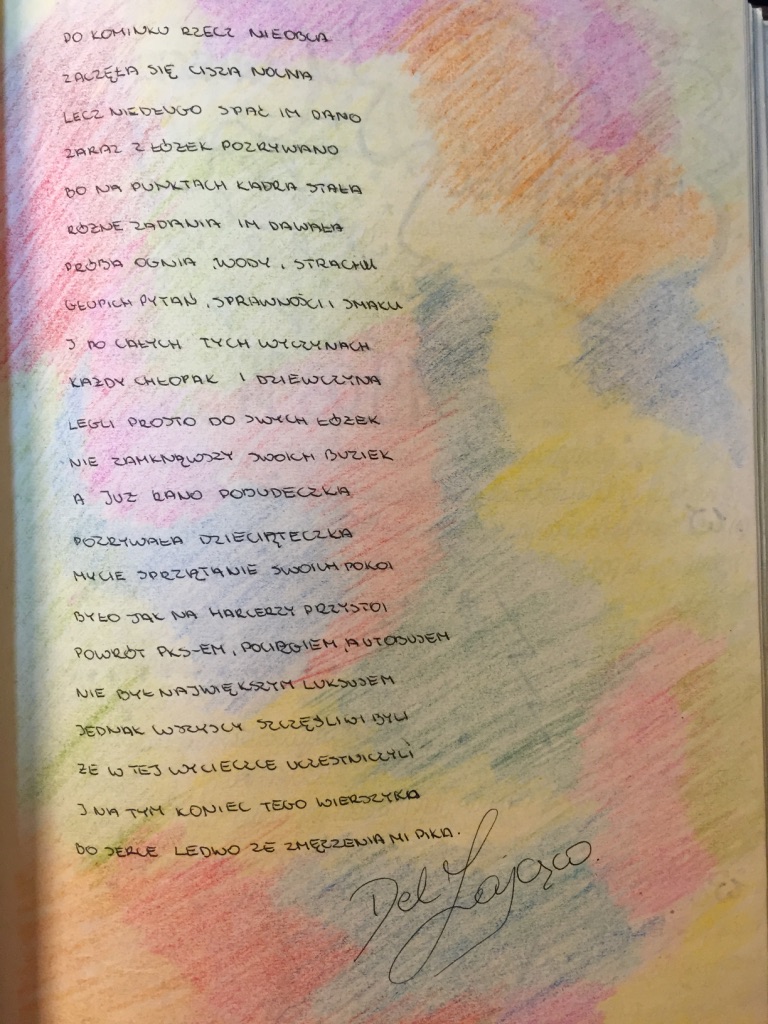 PO KOMINKU RZECZ NIEOBCA
ZACZĘŁA SIĘ CISZA NOCNA
LECZ NIEDŁUGO SPAĆ IM DANO
ZARAZ Z ŁÓŻEK POZRYWANO
BO NA PUNKTACH KADRA STAŁA
RÓŻNE ZADANIA IM DAWAŁA
PRÓBA OGNIA, WODY, STRACHU
GŁUPICH PYTAŃ, SPRAWNOŚCI I SMAKU
I PO CAŁYCH TYCH WYCZYNACH
KAŻDY CHŁOPAK I DZIEWCZYNA
LEGLI PROSTO DO SWYCH ŁÓŻEK
NIE ZAMKNĄWSZY SWOICH BUZIEK
A JUŻ RANO POBUDECZKA
POZRYWAŁA DZIECIĄTECZKA
MYCIE SPRZĄTANIE SWOICH POKOI
BYŁO JAK NA HARCERZY PRZYSTOI
POWRÓT PKS-EM, POCIĄGIEM, AUTOBUSEM
NIE BYŁ NAJWIĘKSZYM LUKSUSEM
JEDNAK WSZYSCY SZCZĘŚLIWI BYLI
ŻE W TEJ WYCIECZCE UCZESTNICZYLI
I NA TYM KONIEC TEGO WIERSZYKA
BO SERCE LEDWO ZE ZMĘCZENIA MI PIKA.
Del